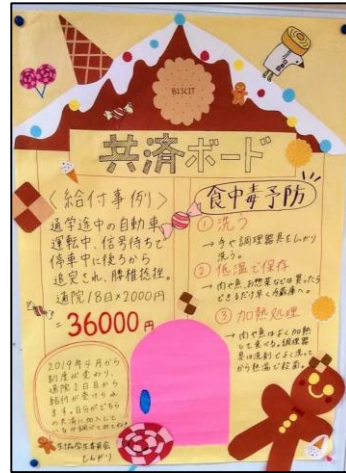 BISCIT
共済ボード
〈給付事例〉
通学途中の自動車
運転中、信号待ちで
停車中に後ろから
追突され、腰椎捻挫。
通院18日×2000円
=36000円
2019年4月から
制度が変わり、
通院1日目から
給付が受けられ
ます。自分がどちら
の共済に加入して
いるか調べてみてね!
生協学生委員会
食中毒予防
① 洗う
→手や調理器具をしっかり
洗う。
② 低温で保存
→肉や魚、お惣菜などは買ったら
できるだけ早く冷蔵庫へ。
③ 加熱処理
→肉や魚はよく加熱
して食べる。調理器
具は洗剤でよく洗って
から熱湯で殺菌。